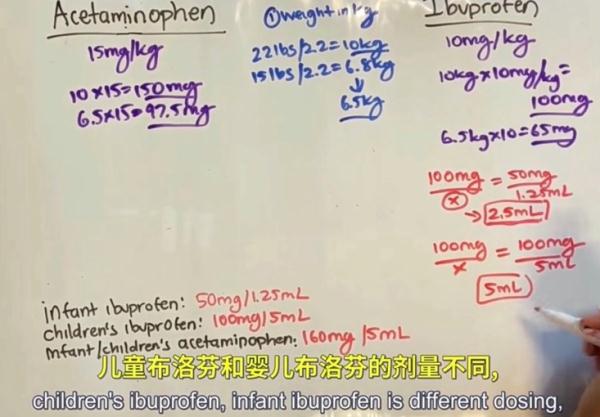 Acetaminophen
15mg/kg
10x15=150mg
6.5x15=97.5mg
① weight in kg
22lbs/2.2=10kg
15lbs/2.2=6.8kg
↓
6.5kg
Ibuprofen
10mg/kg
10kgx10mg/kg=
100mg
6.5kgx10=65mg
100mg/x = 50mg/1.25mL
→ 2.5mL
100mg/x = 100mg/5mL
5mL
infant ibuprofen: 50mg/1.25mL
children's ibuprofen: 100mg/5mL
infant/children's acetaminophen: 160mg/5mL
儿童布洛芬和婴儿布洛芬的剂量不同,
children's ibuprofen, infant ibuprofen is different dosing,